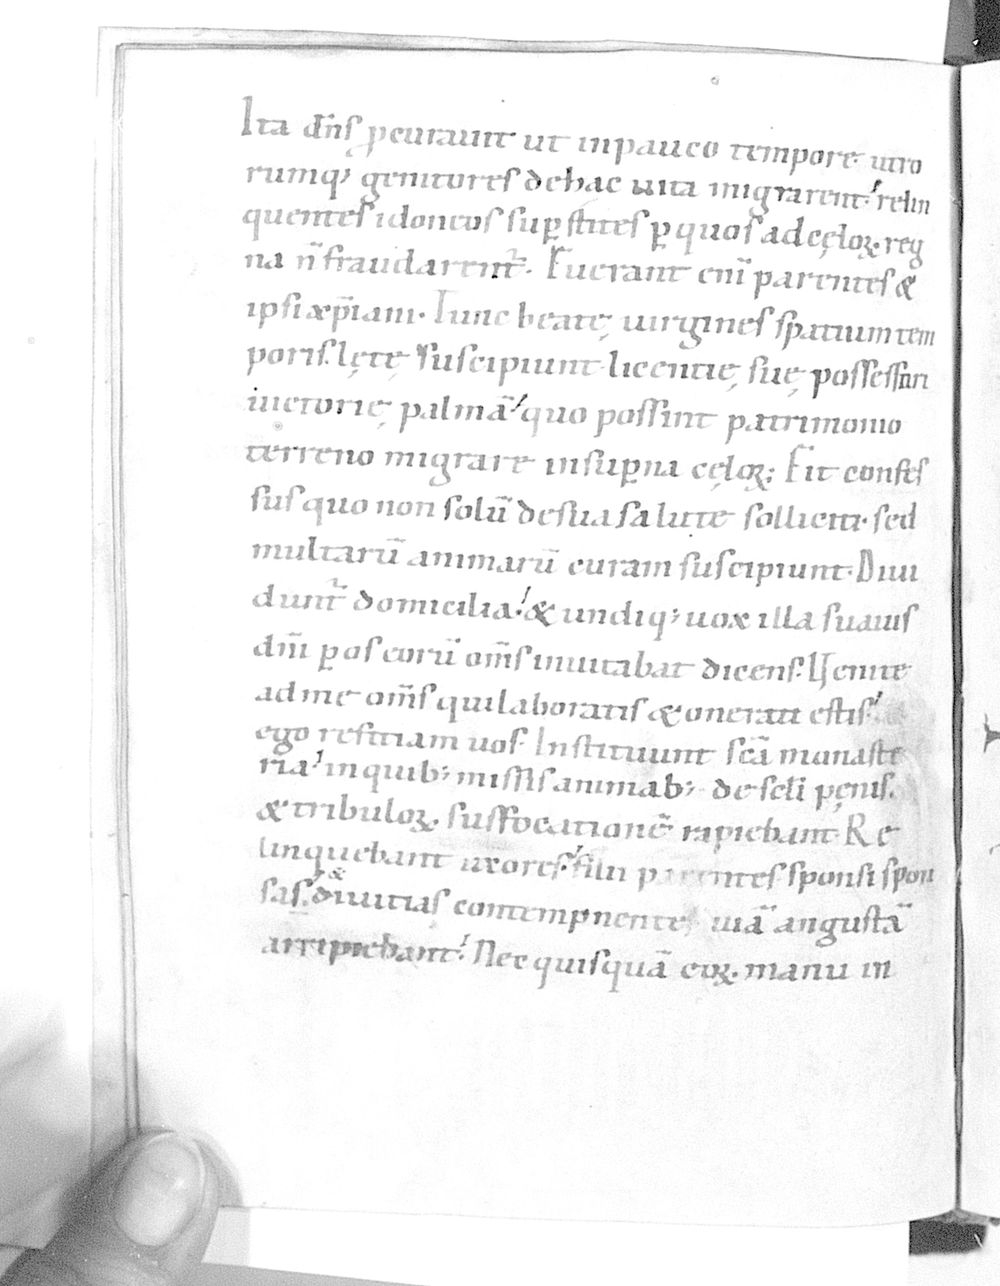 Ita dn̄s p̄curauit ut inpauco tempore utro
rumq; genitores dehac uita migrarent. relin
quentes idoneos sup̱stites p̱ quos ad cęloꝝ reg
na n̄ fraudarent᷑. Fuerant eni᷑ parentes &
ipsi xp̄iani. Tunc beatę uirgines spatium tem
poris. lętę suscipiunt licentię suę possessuri
uictorię palmā. quo possint patrimonio
terreno migrare insup̱na cęloꝝ; Fit conses
sus quo non solū desua salute solliciti. sed
multarū animarū curam suscipiunt. Diui
dunt᷑ domicilia. & undiq; uox illa suauis
dn̄i p̱ os eorū om̄s inuitabat dicens. Uenite
ad me om̄s qui laboratis & onerati estis.
ego reficiam uos. Instituunt sc̄a monaste
ria. in quib; missis animab; de scl̄i pęnis.
& tribuloꝝ. suffocationē rapiebant. Re
linquebant uxores. filii parentes. sponsi spon
sas. & diuitias contempnentes uiā angustā
arripiebant. Nec quisquā eoꝝ. manu in